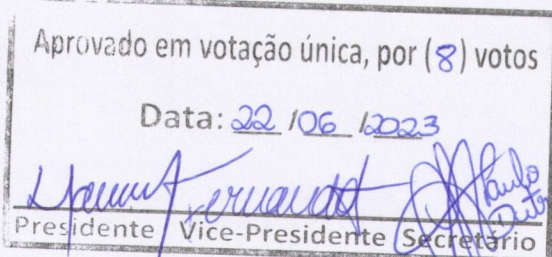 Aprovado em votação única, por (8) votos
Data: 22 /06 /2023
Fernanda
Paulo
Presidente Vice-Presidente Secretário